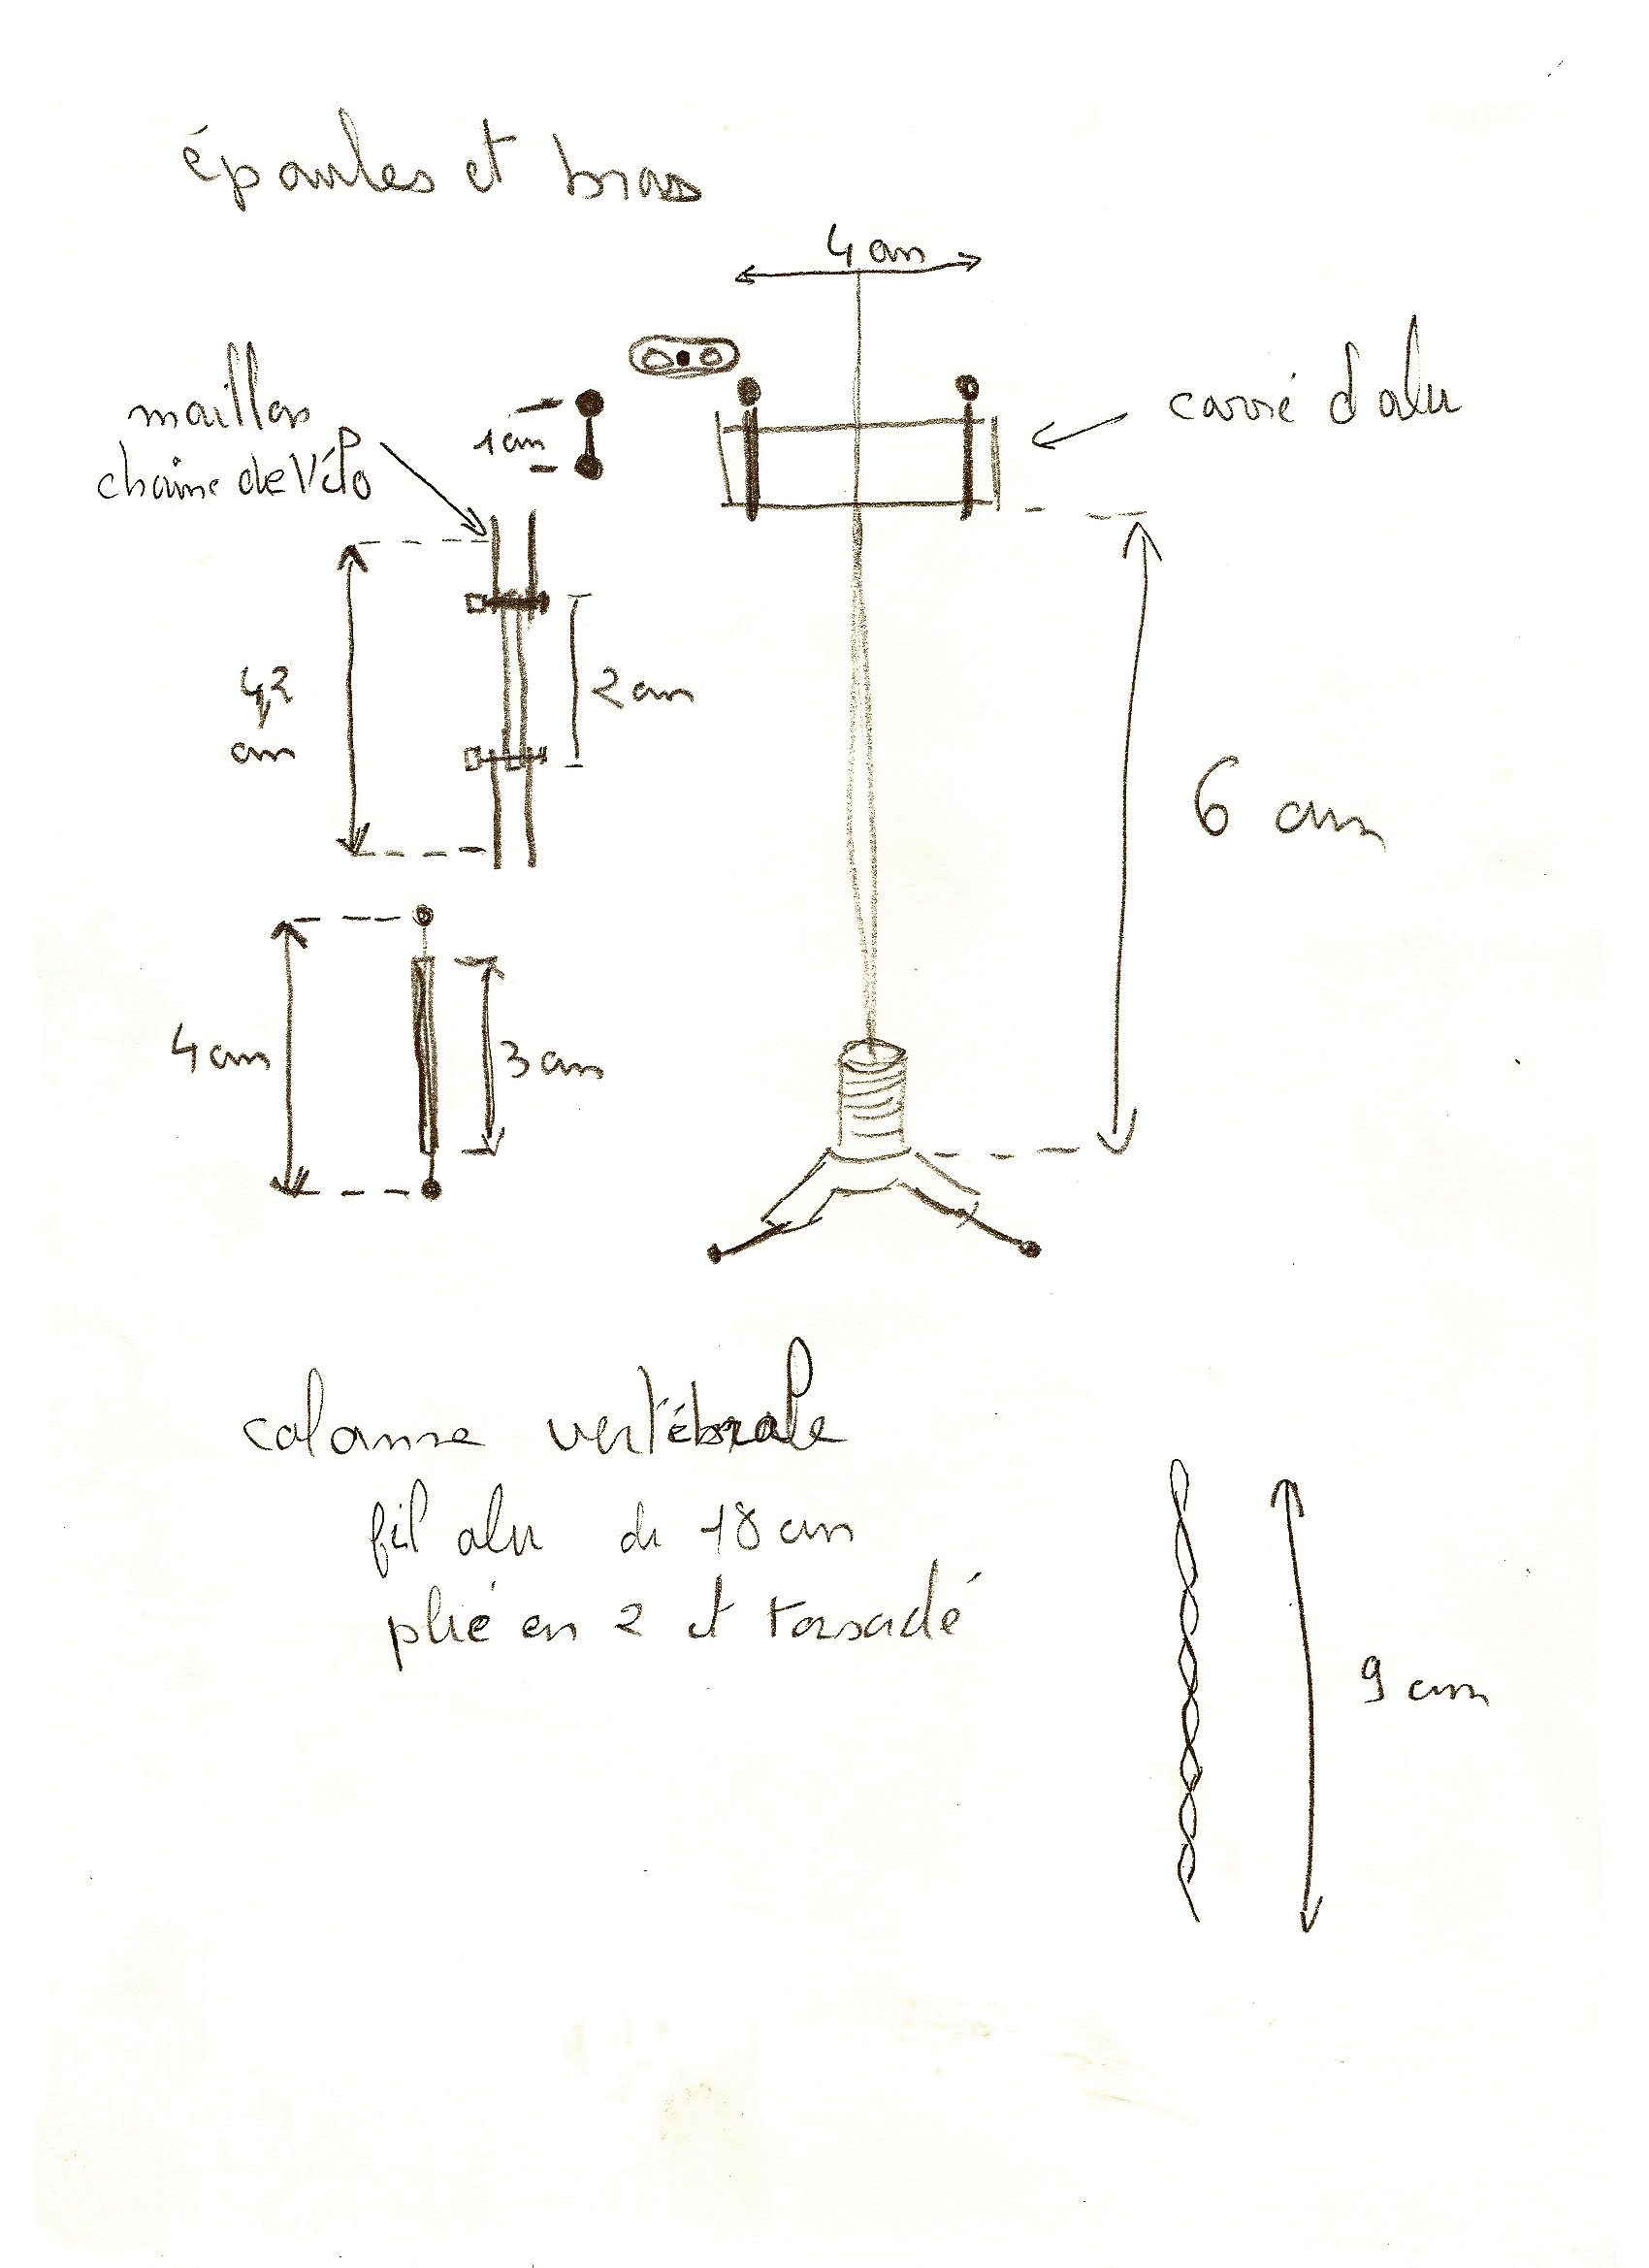 épaules et bras
4 cm
maillons
chaine de Vélo
1 cm
carré d'alu
4,2
cm
2 cm
6 cm
4 cm
3 cm
colonne vertébrale
fil alu de 18 cm
plié en 2 et torsadé
9 cm